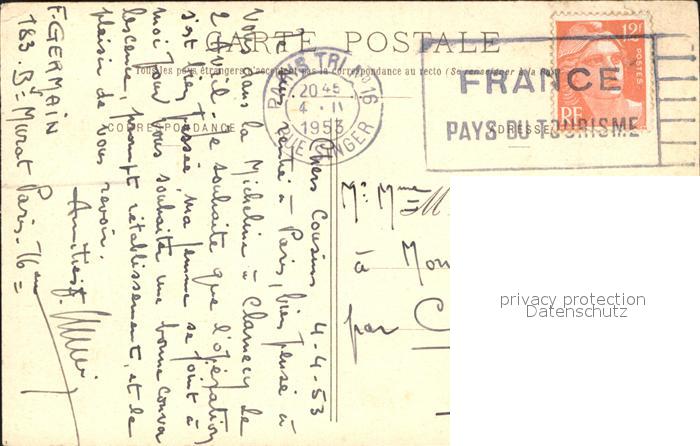 CARTE POSTALE
Tous les pays étrangers n'acceptent pas la correspondance au recto (Se renseigner à la Poste)
CORRESPONDANCE
ADRESSE
PARIS TRI Nº 16
20 45
4 · II
1953
RUE SINGER
FRANCE
PAYS DU TOURISME
12F
POSTES
RF
4-4-53
Chers Cousins
rentré à Paris, bien pensé à
Vous dans la Micheline à Clamecy le
2 Avril. Je souhaite que l'opération
s'est bien passée, ma femme se joint à
moi pour vous souhaiter une bonne conva
lescence, prompt rétablissement, et le
plaisir de vous revoir.
Amitiés.
F. GERMAIN
183. Bd Murat Paris. 16eme
Mr Mme
à Mou
par C
privacy protection
Datenschutz